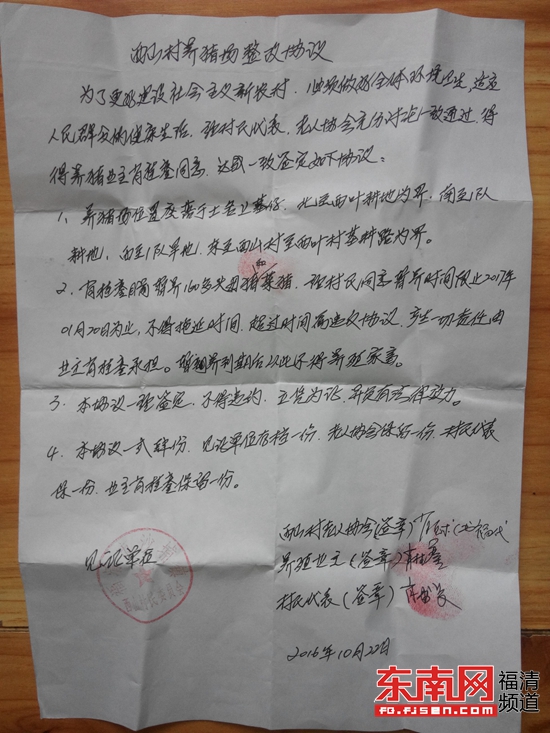 西山村养猪场整改协议
为了更好建设社会主义新农村,必须做好全体环境卫生,适应
人民群众的健康生活,经村民代表,老人协会充分讨论一致通过,得
得养猪业主肖程鎏同意,达成一致签定如下协议:
1、养猪场位置 北至西叶耕地为界,南至1队
耕地,西至1队旱地,东至西山村至西叶村基耕路为界。
2、肖程鎏 暂养160多头母猪和菜猪,经村民同意暂养时间限止2017年
01月20日为止,不得拖延时间,超过时间 违反协议,产生一切责任由
业主肖程鎏承担。暂养到期后以此不得养殖家畜。
3、本协议一经签定,不得违约,立凭为证,并负有法律效力。
4、本协议一式肆份,见证单位存档一份,老人协会保留一份,村民代表
保一份,业主肖程鎏保留一份。
西山村老人协会(签章)
见证单位
养殖业主(签章)
村民代表(签章)
2016年10月22日
东南网 福清频道
FQ.FJSEN.COM